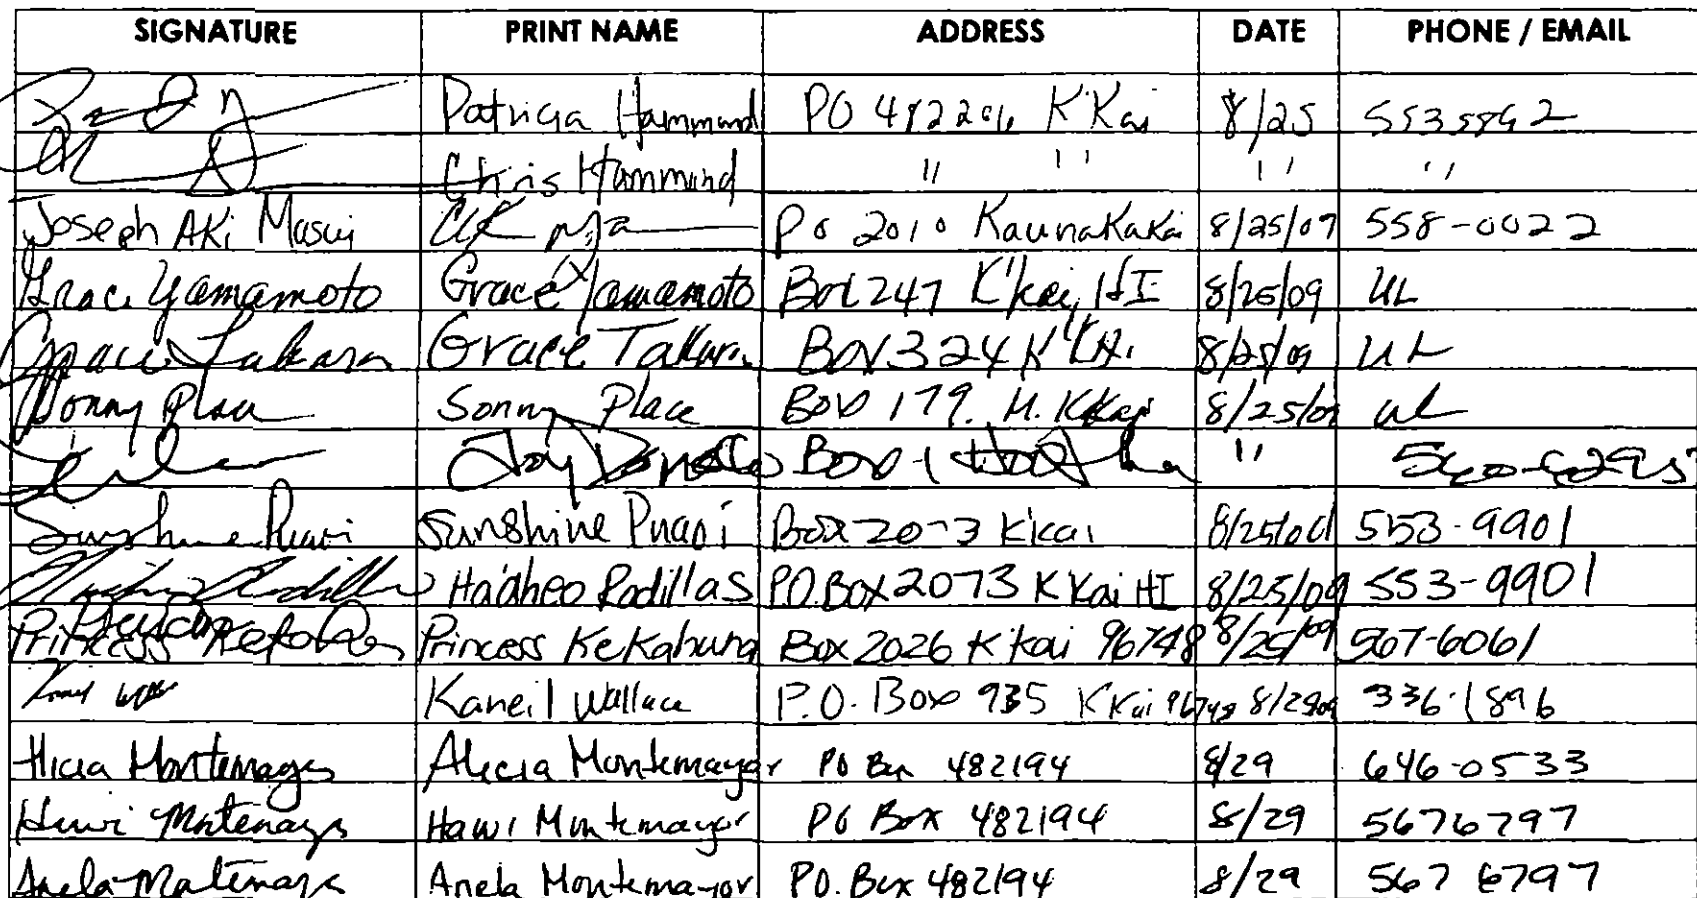 SIGNATURE PRINT NAME ADDRESS DATE PHONE / EMAIL
Patricia Hammond PO K'Kai 8/25
Chris Hammond " " " "
Joseph AKi Masui Po 2010 KaunaKaKai 8/25/09 558-0022
Grace Yamamoto Grace Yamamoto Box 247 K'kai, HI 8/25/09 UL
Grace Takara Grace Takara Box 324 K'Kai 8/25/09 UL
Sonny Place Sonny Place Box 179. K'Kai 8/25/09 UL
Joy Box 1 "
Sunshine Puaoi Sunshine Puaoi Box 2073 K'kai 8/25/09 553-9901
Padillas P.O. Box 2073 K Kai HI 8/25/09 553-9901
Princess Princess KeKahuna Box 2026 K'kai 96748 8/25/09 567-6061
Kaneil Wallace P.O. Box 935 K Kai 96748 336-1896
Alicia Montemayor Alicia Montemayor PO Box 482194 8/29 646-0533
Hawi Montemayor Hawi Montemayor PO Box 482194 8/29 5676797
Anela Montemayor Anela Montemayor P.O. Box 482194 8/29 567 6797